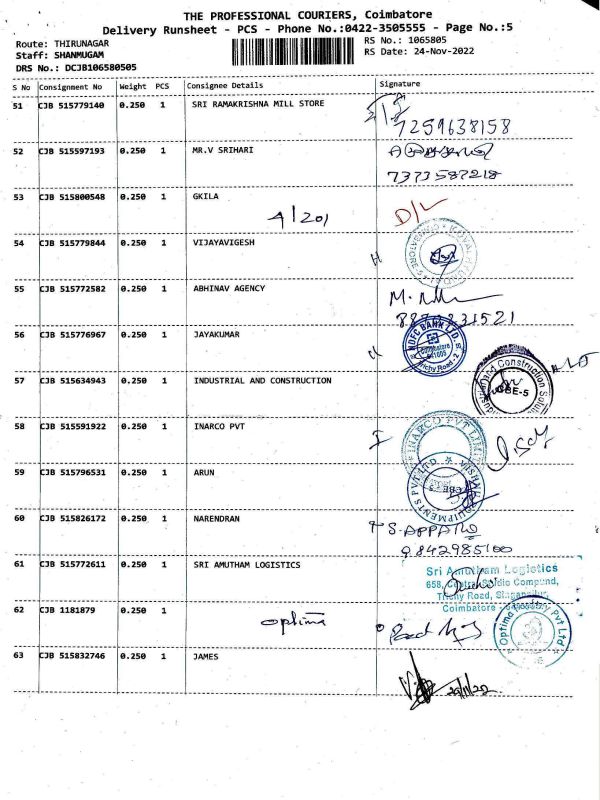 THE PROFESSIONAL COURIERS, Coimbatore
Delivery Runsheet - PCS - Phone No.:0422-3505555 - Page No.:5
Route: THIRUNAGAR
RS No.: 1065805
Staff: SHANMUGAM
RS Date: 24-Nov-2022
DRS No.: DCJB106580505
S No Consignment No Weight PCS Consignee Details Signature
51 CJB 515779140 0.250 1 SRI RAMAKRISHNA MILL STORE
7259638158
52 CJB 515597193 0.250 1 MR.V SRIHARI
7373587218
53 CJB 515800548 0.250 1 GKILA
4/201 D/L
54 CJB 515779844 0.250 1 VIJAYAVIGESH
55 CJB 515772582 0.250 1 ABHINAV AGENCY
56 CJB 515776967 0.250 1 JAYAKUMAR
HDFC BANK LTD.
Coimbatore
Trichy Road - 2
57 CJB 515634943 0.250 1 INDUSTRIAL AND CONSTRUCTION
CBE-5
58 CJB 515591922 0.250 1 INARCO PVT
INARCO PVT LIMITED
59 CJB 515796531 0.250 1 ARUN
60 CJB 515826172 0.250 1 NARENDRAN
9842985100
61 CJB 515772611 0.250 1 SRI AMUTHAM LOGISTICS
Sri Amutham Logistics
658, Central Studio Compund,
Trichy Road, Singanallur,
Coimbatore
62 CJB 1181879 0.250 1
optima
63 CJB 515832746 0.250 1 JAMES